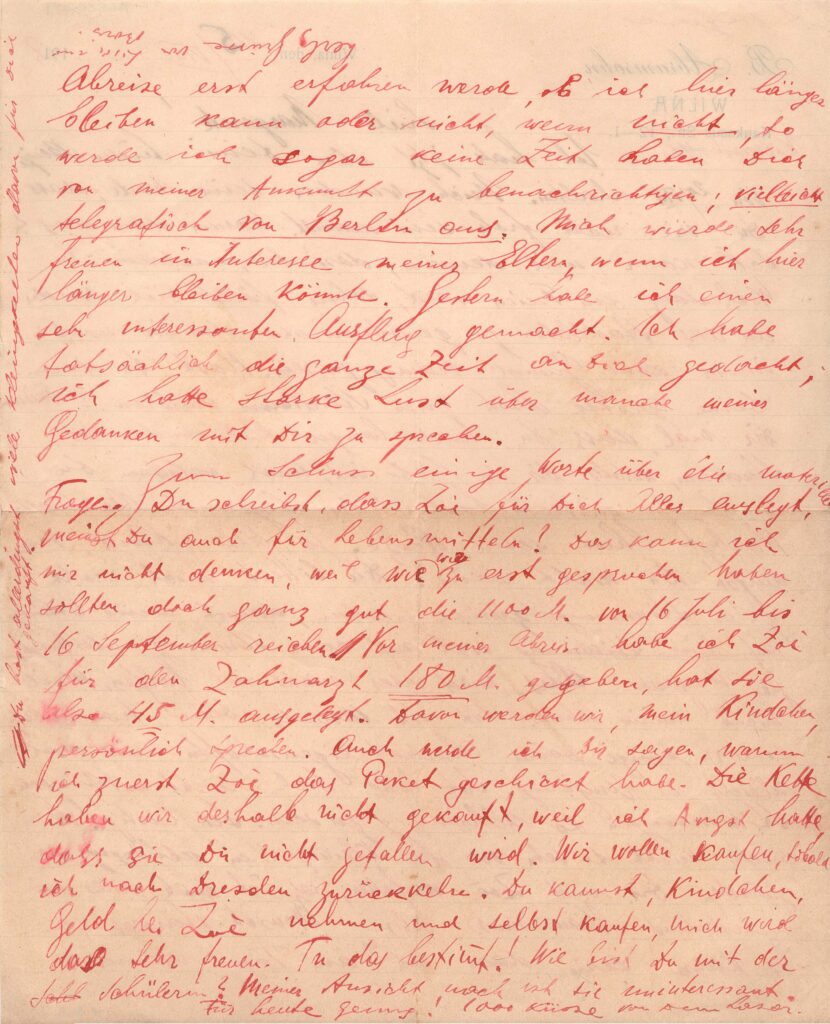 Abreise erst erfahren werde, ob ich hier länger
bleiben kann oder nicht, wenn nicht, so
werde ich sogar keine Zeit haben Dich
von meiner Ankunft zu benachrichtigen; vielleicht
telegrafisch von Berlin aus. Mich würde sehr
freuen im Interesse meiner Eltern, wenn ich hier
länger bleiben könnte. Gestern habe ich einen
sehr interessanten Ausflug gemacht. Ich habe
tatsächlich die ganze Zeit an Dich gedacht,
ich hatte starke Lust über manche meiner
Gedanken mit Dir zu sprechen.
Zum Schluss einige Worte über die
Frage. Du schreibst, dass Zoë für Dich Alles auslegt,
meinst Du auch für Lebensmitteln! Das kann ich
mir nicht denken, weil wie wir zu erst gesprochen haben
sollten doch ganz gut die 1100 M. von 16 Juli bis
16 September reichen! Vor meiner Abreise habe ich Zoë
für den Zahnarzt 180 M. gegeben, hat sie
also 45 M. ausgelegt. Davon werden wir, mein Kindchen,
persönlich sprechen. Auch werde ich Dir sagen, warum
ich zuerst Zoë das Paket geschickt habe. Die Kette
haben wir deshalb nicht gekauft, weil ich Angst hatte,
dass sie Dir nicht gefallen wird. Wir wollen kaufen, sobald
ich nach Dresden zurückkehre. Du kannst, Kindchen,
Geld bei Zoë nehmen und selbst kaufen, mich wird
das sehr freuen. Tu das bestimmt! Wie bist Du mit der
Schülerin? Meiner Ansicht nach ist sie uninteressant
Für heute genug! 1000 Küsse von Dein Lasar.
Du hast allerdings viele Kleinigkeiten dann für Dich
gekauft.
B.
WILNA